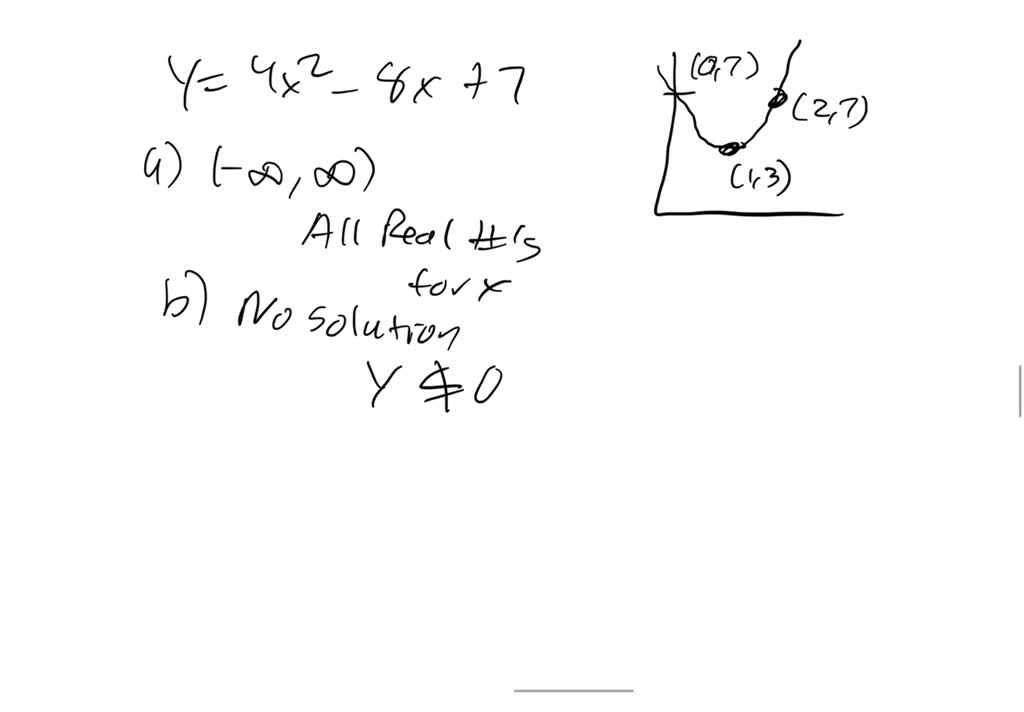 y = 4x² - 8x + 7
a) (-∞, ∞)
All Real #'s
for x
b) No solution
y ≰ 0
(0,7)
(2,7)
(1,3)